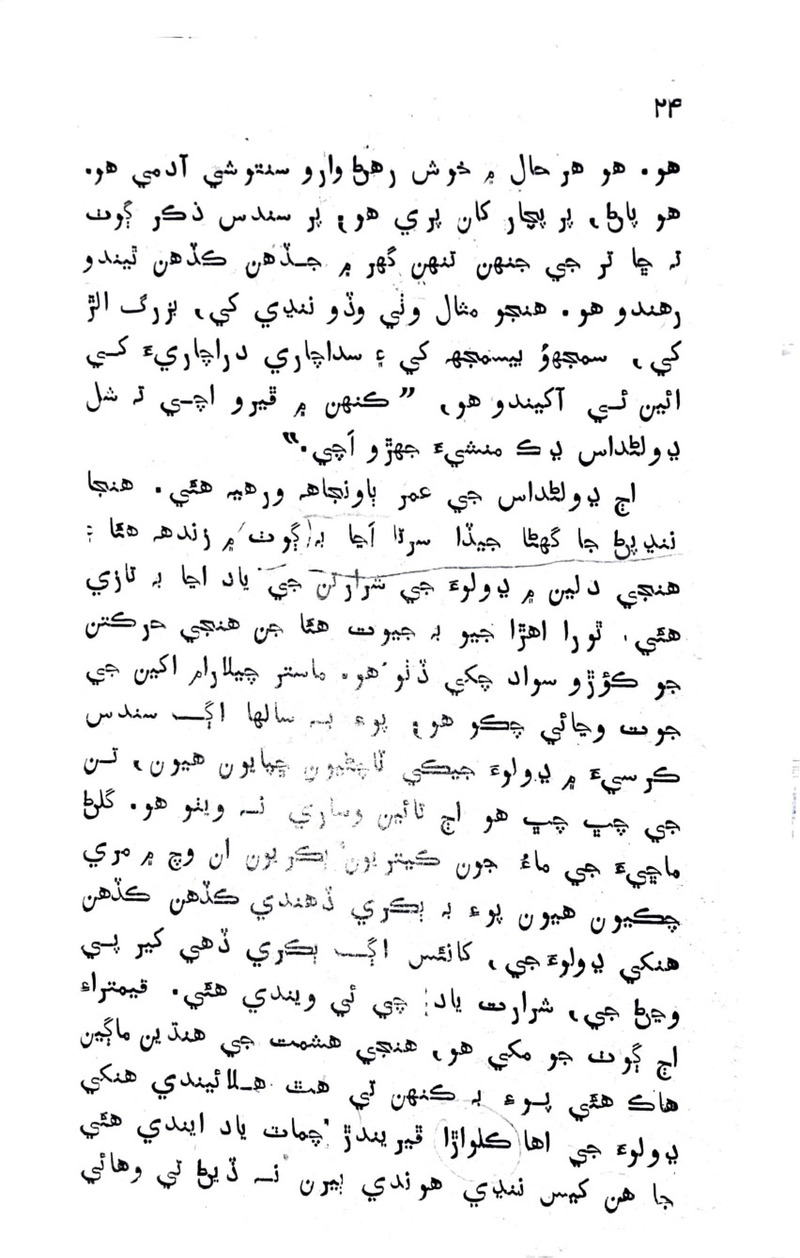 ۲۴
هو. هو هر حال ۾ خوش رهڻ وارو سنتوشي آدمي هو.
هو پاڻ، پر پچار کان پري هو؛ پر سندس ذڪر ڳوٺ
تہ ڇا تر جي جنهن تنهن گهر ۾ جـڏهن ڪڏهن ٿيندو
رهندو هو. هنجو مثال وٺي وڏو ننڍي کي، بزرگ الڙ
کي، سمجهو بيسمجهہ کي ۽ سداچاري دراچاريءَ کـي
ائين ئـي آکيندو هو، ”ڪنهن ۾ ڦيرو اچـي تہ شل
ڍولڻداس ڍڪ منشيءَ جهڙو اَچي.“
اڄ ڍولڻداس جي عمر ٻاونجاهہ ورهيہ هئي. هنجا
ننڍپڻ جا گهڻا جيڏا سرتا اَڃا بہ ڳوٺ ۾ زندهہ هئا؛
هنجي دلين ۾ ڍولوءَ جي شرارتن جي ياد اڃا بہ تازي
هئي. ٿورا اهڙا جيو بہ جيوت هئا جن هنجي حرڪتن
جو ڪؤڙو سواد چکي ڏٺو هو. ماستر چيلارام اکين جي
جوت وڃائي چڪو هو؛ پوءِ بـہ سالها اڳـ سندس
ڪرسيءَ ۾ ڍولوءَ جيڪي ٽاچڻيون چڀايون هيون، تـن
جي چڀ چڀ هو اڄ تائين وساري نـہ ويٺو هو. گلڻ
ماڇيءَ جي ماءُ جون ڪيتريون ٻڪريون ان وچ ۾ مري
چڪيون هيون پوءِ بہ ٻڪري ڏهندي ڪڏهن ڪڏهن
هنکي ڍولوءَ جي، کانئس اڳـ ٻڪري ڏهي کير پـي
وڃڻ جي، شرارت ياد پي ئي ويندي هئي. قيمتراءِ
اڄ ڳوٺ جو مکي هو، هنجي هشمت جي هنڌين ماڳين
هاڪ هئي پـوءِ بہ ڪنهن تي هٿ هـلائيندي هنکي
ڍولوءَ جي اها ڪلواڙا ڦيريندڙ چماٽ ياد ايندي هئي
جا هن کيس ننڍي هوندي ٻيرن نـہ ڏيڻ تي وهائي